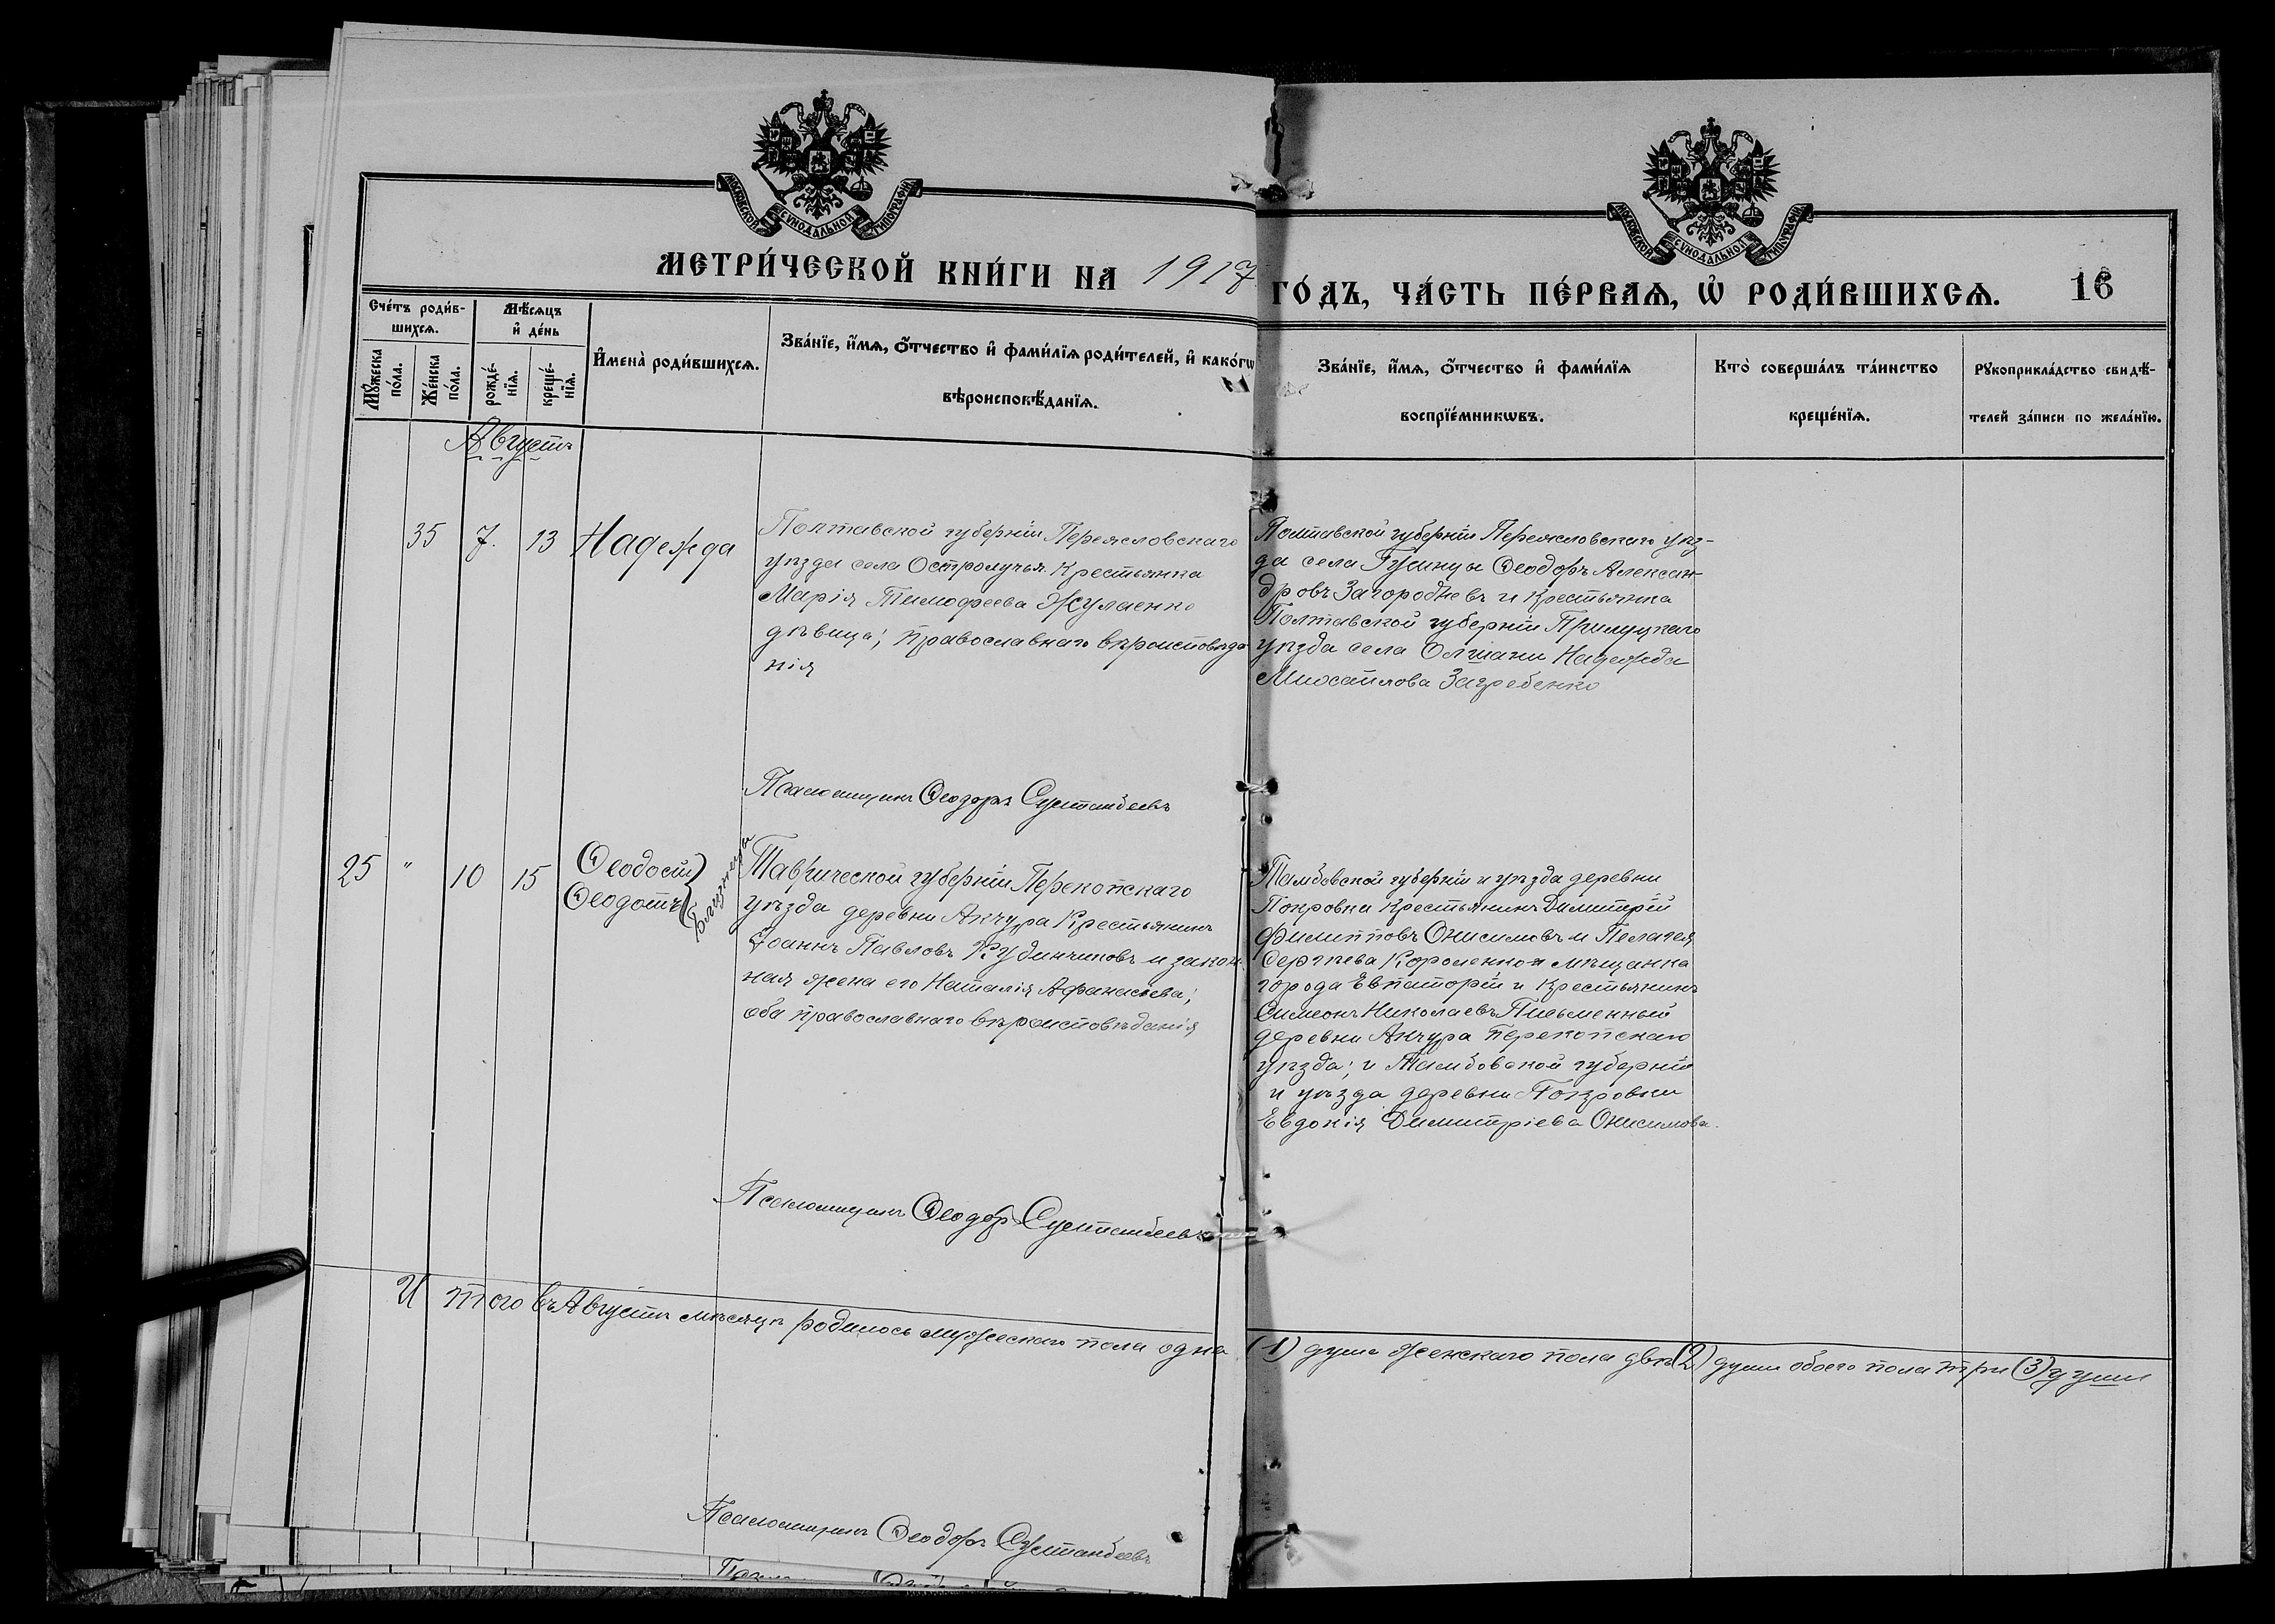 МОСКОВСКОЙ СѴНОДАЛЬНОЙ ТИПОГРАФІИ
МОСКОВСКОЙ СѴНОДАЛЬНОЙ ТИПОГРАФІИ
МЕТРИ́ЧЕСКОЙ КНИ́ГИ НА 1917
ГО́ДЪ, ЧА́СТЬ ПЕ́РВАѦ, Ѡ РОДИ́ВШИХСѦ. 16
Сче́тъ роди́в-
шихсѧ.
Мꙋ́жеска
по́ла.
Же́нска
по́ла.
Мѣ́сѧцъ
и҆ де́нь
рожде́-
нїѧ.
креще́-
нїѧ.
И҆мена̀ роди́вшихсѧ.
Зва́нїе, и҆́мѧ, ѻ҆́тчество и҆ фами́лїѧ роди́телей, и҆ како́гѡ
вѣроисповѣ́данїѧ.
Зва́нїе, и҆́мѧ, ѻ҆́тчество и҆ фами́лїѧ
воспрїе́мникѡвъ.
Кто̀ соверша́лъ та́инство
креще́нїѧ.
Рꙋкоприкла́дство свидѣ́-
телей за́писи по жела́нїю.
Августъ
35 7. 13 Надежда
Полтавской губерніи Переясловскаго
уѣзда села Остролучья Крестьянка
Марія Тимофеева Жулаенко
дѣвица; православнаго вѣроисповѣда
нія
Полтавской губерніи Переясловскаго уѣз-
да села Гусинцы Ѳеодоръ Алексан-
дровъ Загородневъ и крестьянка
Полтавской губерніи Прилуцкаго
уѣзда села Олшани Надежда
Загребенко
Псаломщикъ Ѳеодоръ Султанбеевъ
25 " 10 15 Ѳеодосій
Ѳеодотъ
Близнецы
Таврической губерніи Перекопскаго
уѣзда деревни Анчура Крестьянинъ
Іоаннъ Павловъ Кудинчиковъ и закон-
ная жена его Наталія Афанасьева;
оба православнаго вѣроисповѣданія
Тамбовской губерніи и уѣзда деревни
Покровки крестьянинъ Димитрій
Филипповъ Онисимовъ и Пелагея
Сергѣева Короленкоя мѣщанка
города Евпаторіи и Крестьянинъ
Симеонъ Николаевъ Письменный
деревни Анчура Перекопскаго
уѣзда; и Тамбовской губерніи
и уѣзда деревни Покровки
Евдокія Димитріева Онисимова.
Псаломщикъ Ѳеодоръ Султанбеевъ
Итого въ Августѣ мѣсяцѣ родилось мужескаго пола одна (1) душа женскаго пола двѣ (2) души обоего пола три (3) души
Псаломщикъ Ѳеодоръ Султанбеевъ